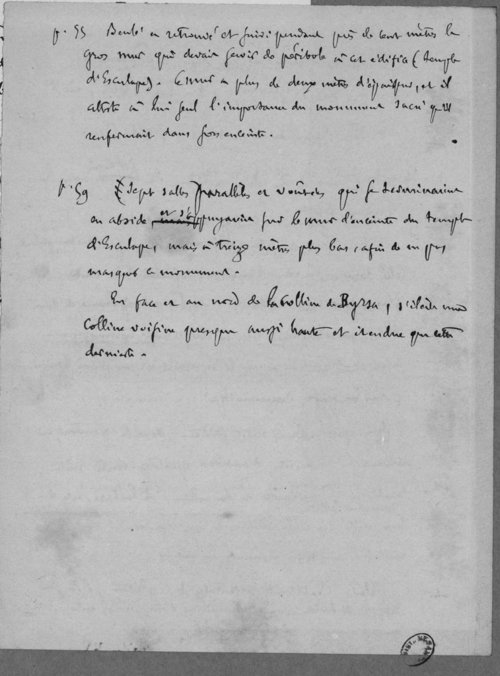 p. 55 Beulé a retrouvé et suivi pendant près de cent mètres le
gros mur qui devait servir de péribole à cet édifice (temple
d'Esculape). Ce mur a plus de deux mètres d'épaisseur, et il
atteste à lui seul l'importance du monument sacré qu'il
renfermait dans son enceinte.
p. 59 sept salles parallèles et voûtées qui se terminaient
en abside et s'appuyaient sur le mur d'enceinte du temple
d'Esculape, mais à treize mètres plus bas, afin de ne pas
masquer ce monument.
En face et au nord de la colline de Byrsa, s'élève une
colline voisine presque aussi haute et étendue que cette
dernière.